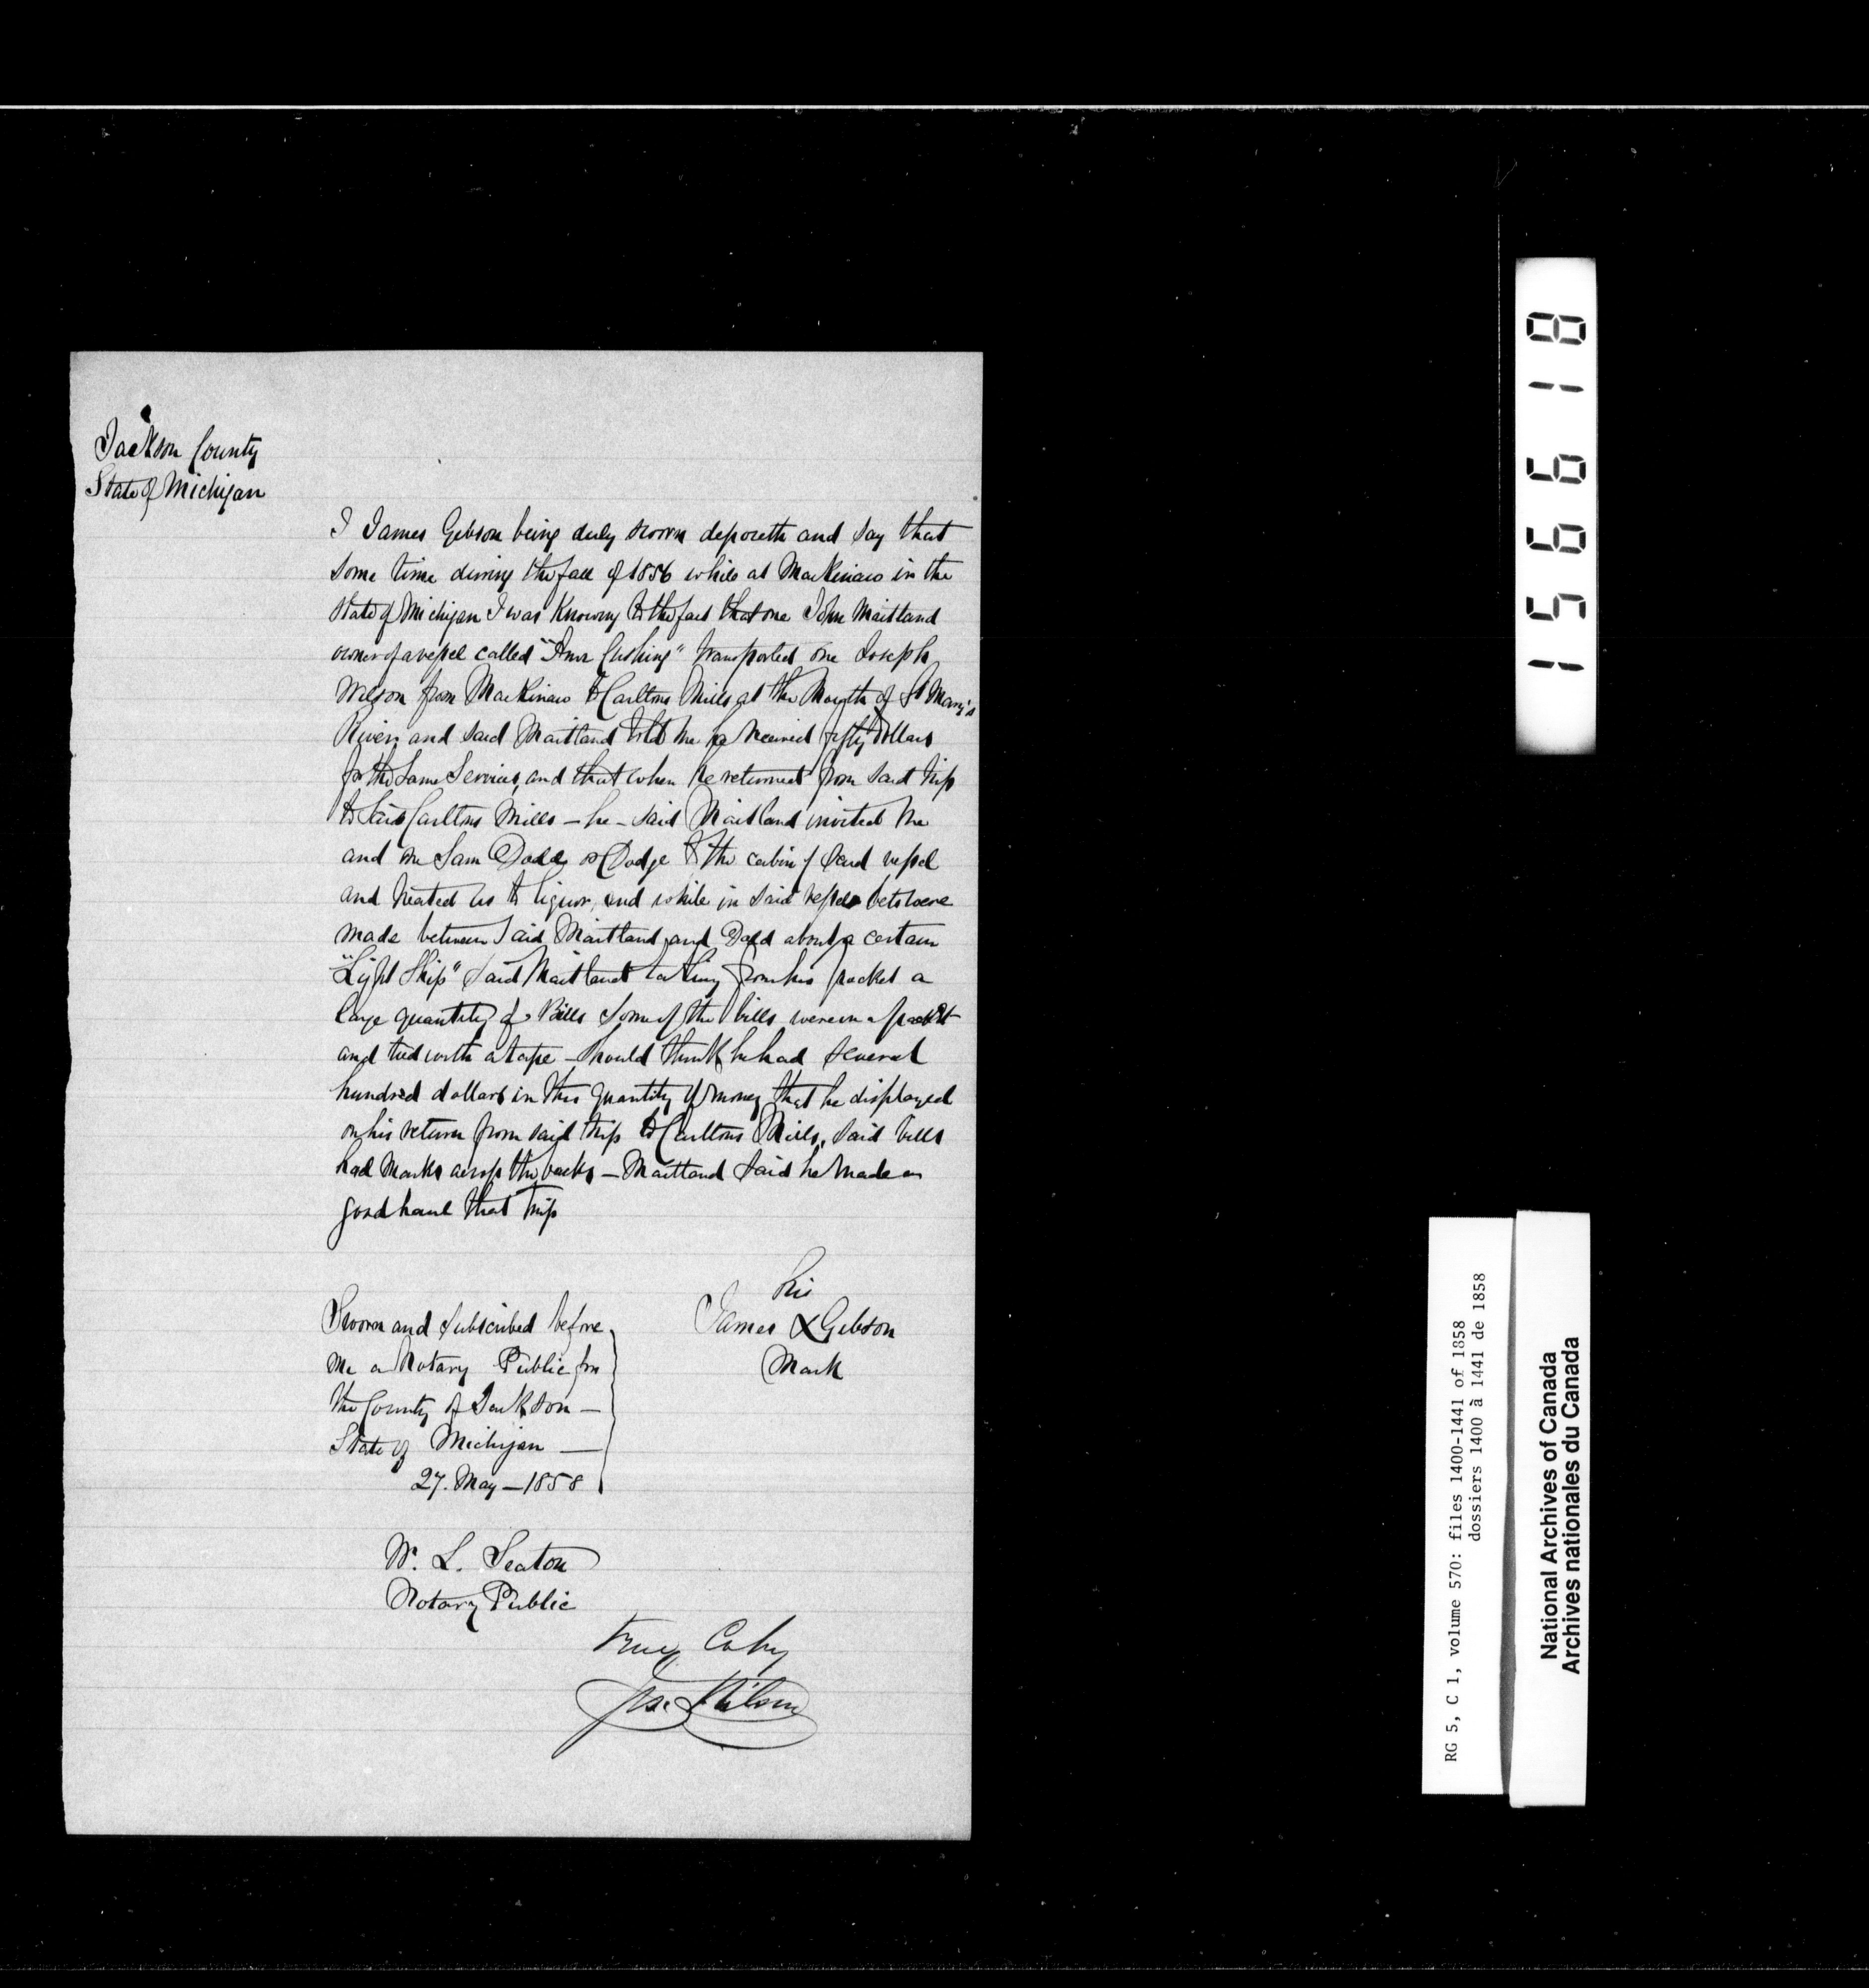 Jackson County
State of Michigan
I James Gibson being duly sworn deposeth and say that
some time during the fall of 1856 while at Mackinaw in the
State of Michigan I was Knowing to the fact that one John Maitland
owner of a vessel called "Ann Cushing" transported one Joseph
Wilson from Mackinaw to Carltons Mills at the Mouth of St Mary's
River, and said Maitland told me he received fifty dollars
for the same Services, and that when he returned from said trip
to said Carltons Mills — he — said Maitland invited me
and one Sam Dodd or Dodge to the cabin of said vessel
and treated us to liquor, and while in said vessel bets were
made between said Maitland and Dodd about a certain
"Light Ship" said Maitland taking from his pocket a
large quantity of Bills some of the bills were in a packet
and tied with a tape — should think he had several
hundred dollars in this quantity of money that he displayed
on his return from said trip to Carltons Mills, said bills
had marks across the backs — Maitland said he made a
good haul that trip
his
James X Gibson
Mark
Sworn and subscribed before
me a Notary Public for
the County of Jackson —
State of Michigan —
27. May — 1858
W. L. Seaton
Notary Public
True Copy
Jos. Wilson
156618
RG 5, C 1, volume 570: files 1400-1441 of 1858
dossiers 1400 à 1441 de 1858
National Archives of Canada
Archives nationales du Canada